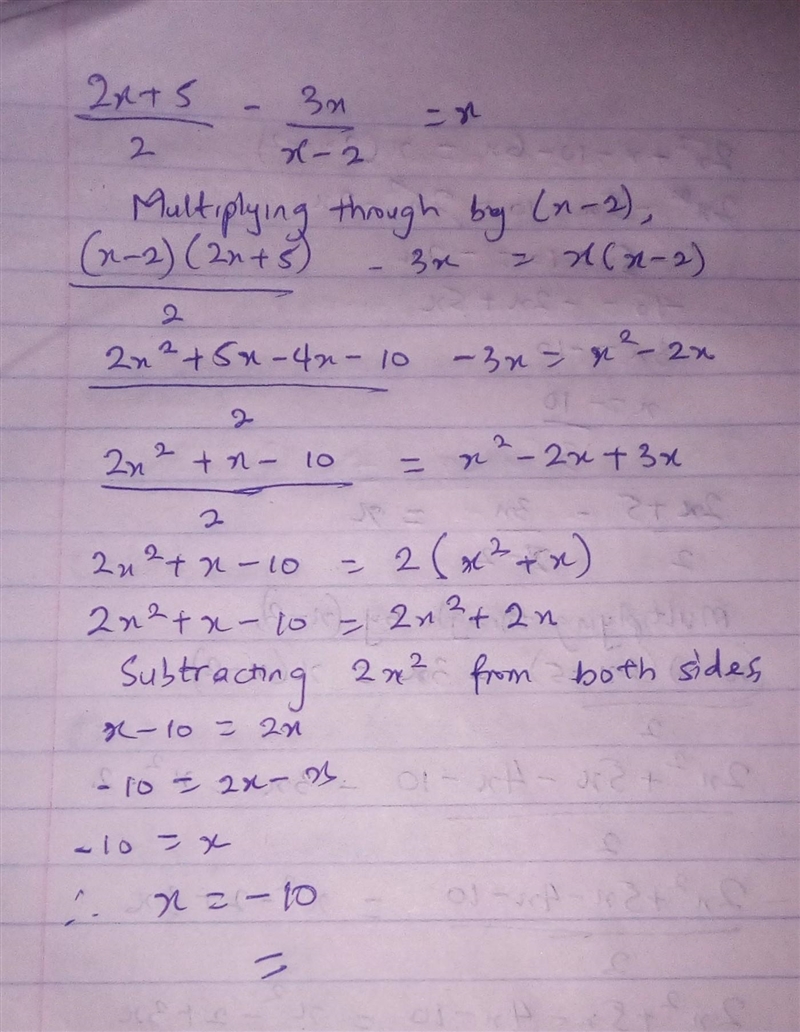 (2x+5)/2 - 3x/(x-2) = x
Multiplying through by (x-2),
(x-2)(2x+5)/2 - 3x = x(x-2)
(2x²+5x-4x-10)/2 - 3x = x²-2x
(2x²+x-10)/2 = x²-2x+3x
2x²+x-10 = 2(x²+x)
2x²+x-10 = 2x²+2x
Subtracting 2x² from both sides,
x-10 = 2x
-10 = 2x-x
-10 = x
∴ x = -10